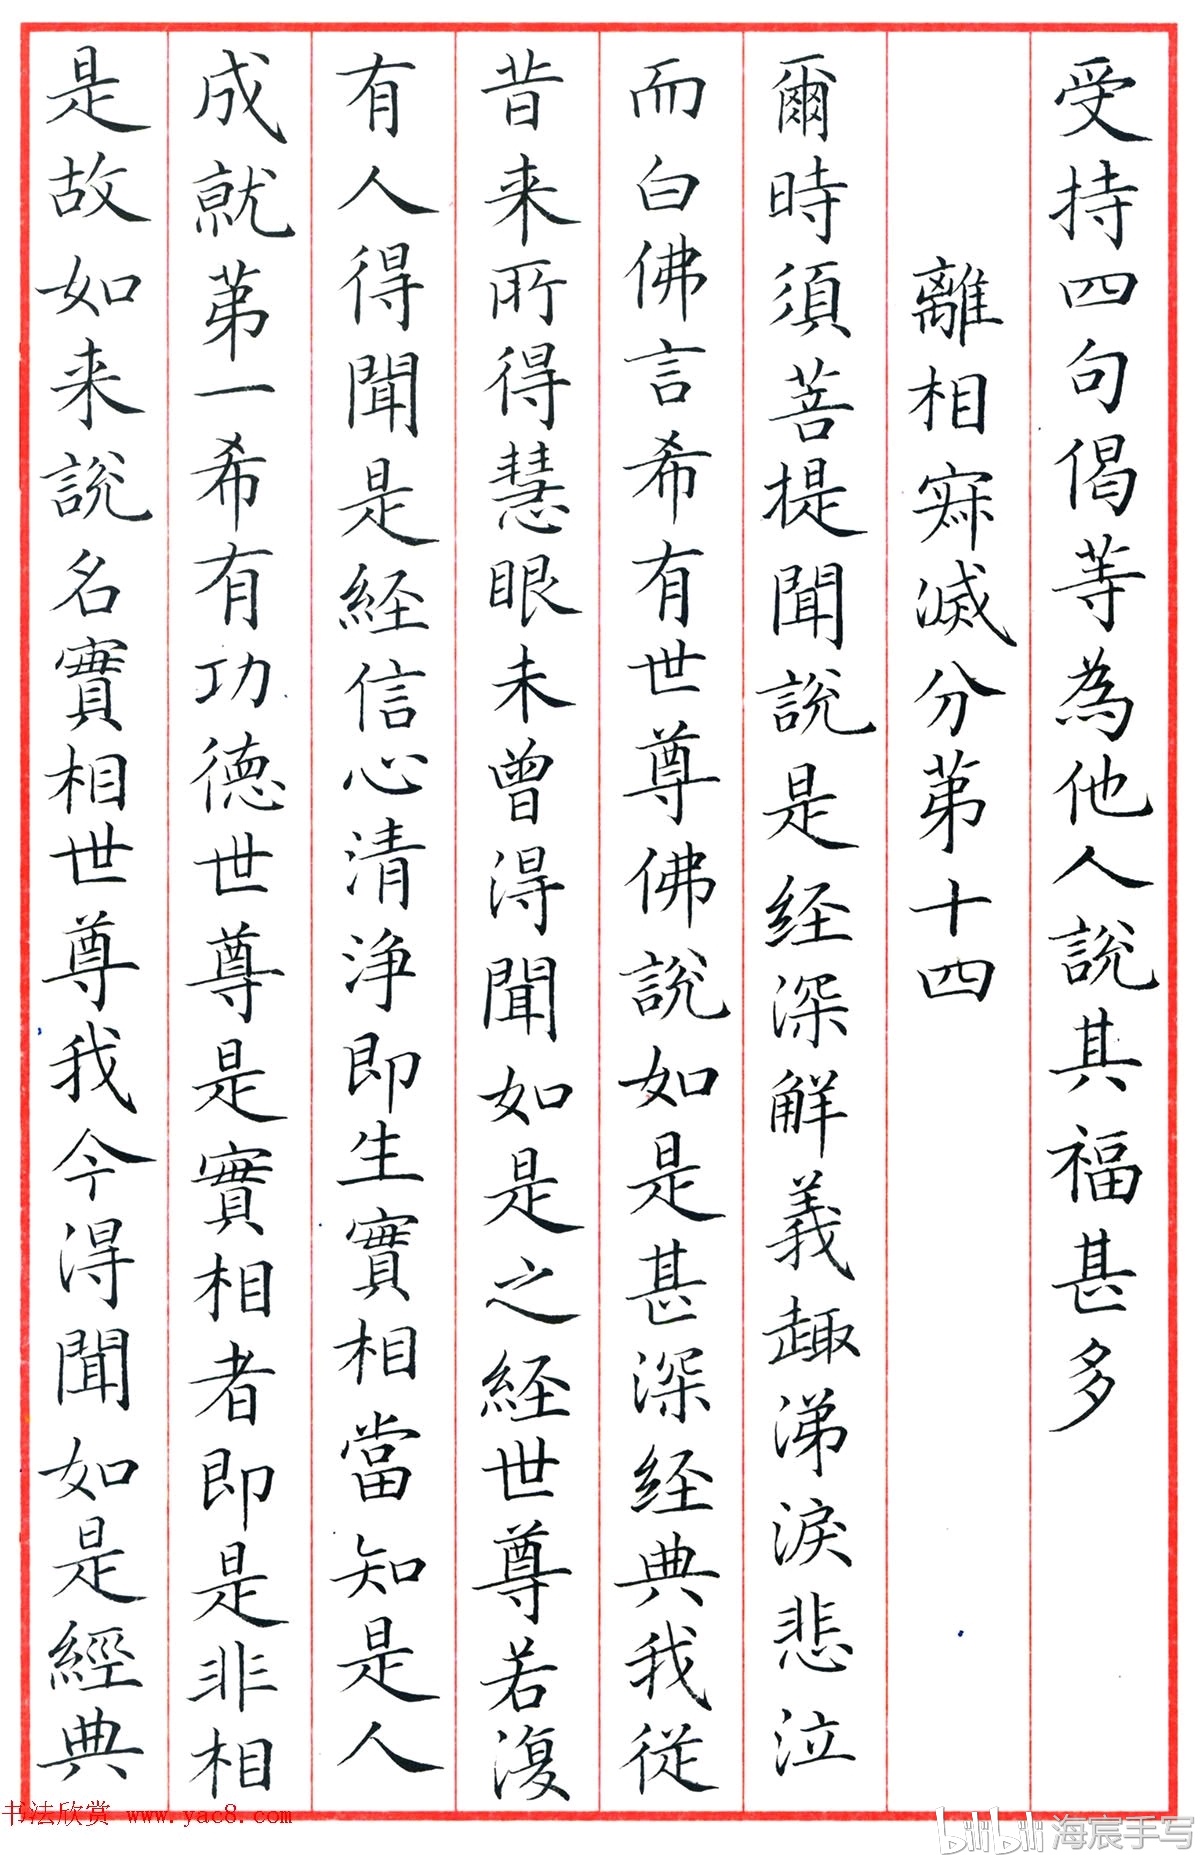 受持四句偈等為他人說其福甚多
離相寂滅分第十四
爾時須菩提聞說是経深解義趣涕淚悲泣
而白佛言希有世尊佛說如是甚深経典我從
昔来所得慧眼未曾得聞如是之経世尊若復
有人得聞是経信心清浄即生實相當知是人
成就第一希有功德世尊是實相者即是非相
是故如来說名實相世尊我今得聞如是經典
书法欣赏 www.yac8.com
bilibili 海宸手写